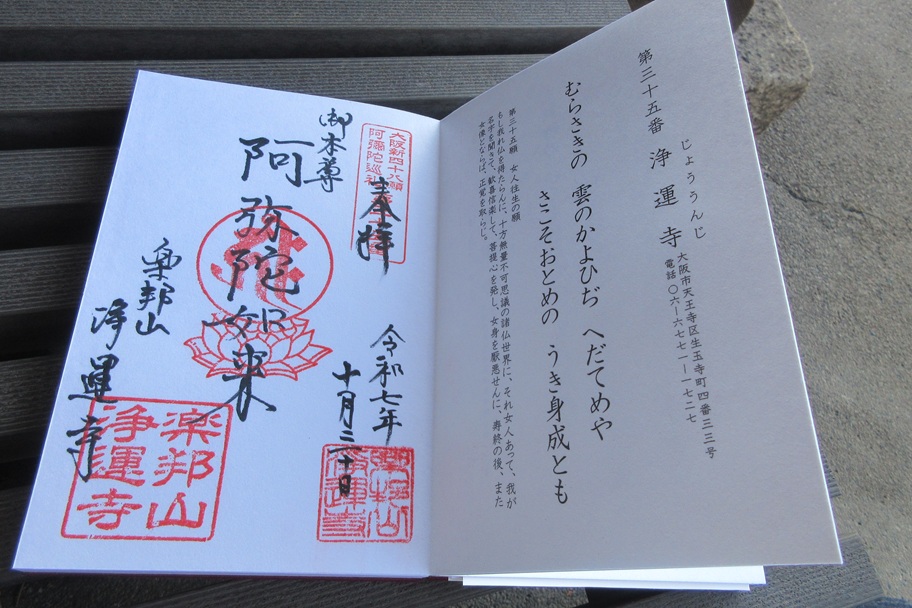 第三十五番 浄運寺
じょううんじ
大阪市天王寺区生玉寺町四番三三号
電話〇六―六七七一―一七二七
むらさきの 雲のかよひぢ へだてめや
さこそおとめの うき身成とも
第三十五願 女人往生の願
もし我れ仏を得たらんに、十方無量不可思議の諸仏世界に、それ女人あって、我が
名字を聞きて、歓喜信楽して、菩提心を発し、女身を厭悪せんに、寿終の後、また
女像とならば、正覚を取らじ。
大阪新四十八願
阿彌陀巡礼
奉拝
令和七年
十月二十日
御本尊
阿弥陀如来
楽邦山
浄運寺
楽邦山
浄運寺